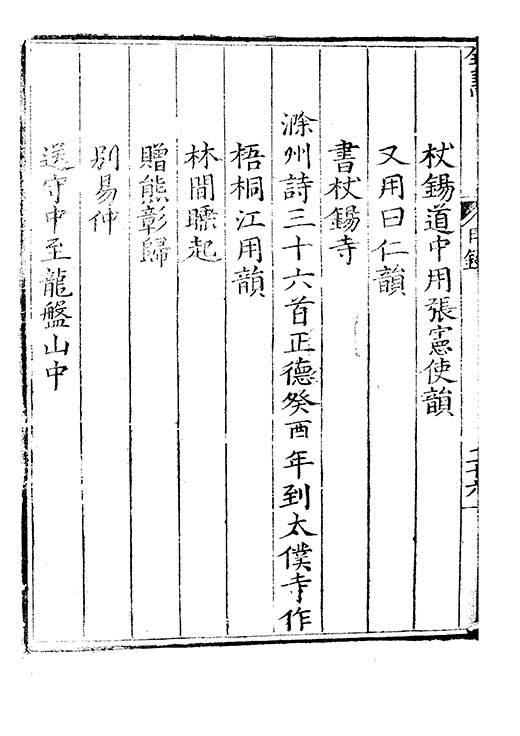 杖錫道中用張憲使韻
又用曰仁韻
書杖錫寺
滁州詩三十六首正德癸酉年到太僕寺作
梧桐江用韻
林間睡起
贈熊彰歸
別易仲
送守中至龍盤山中